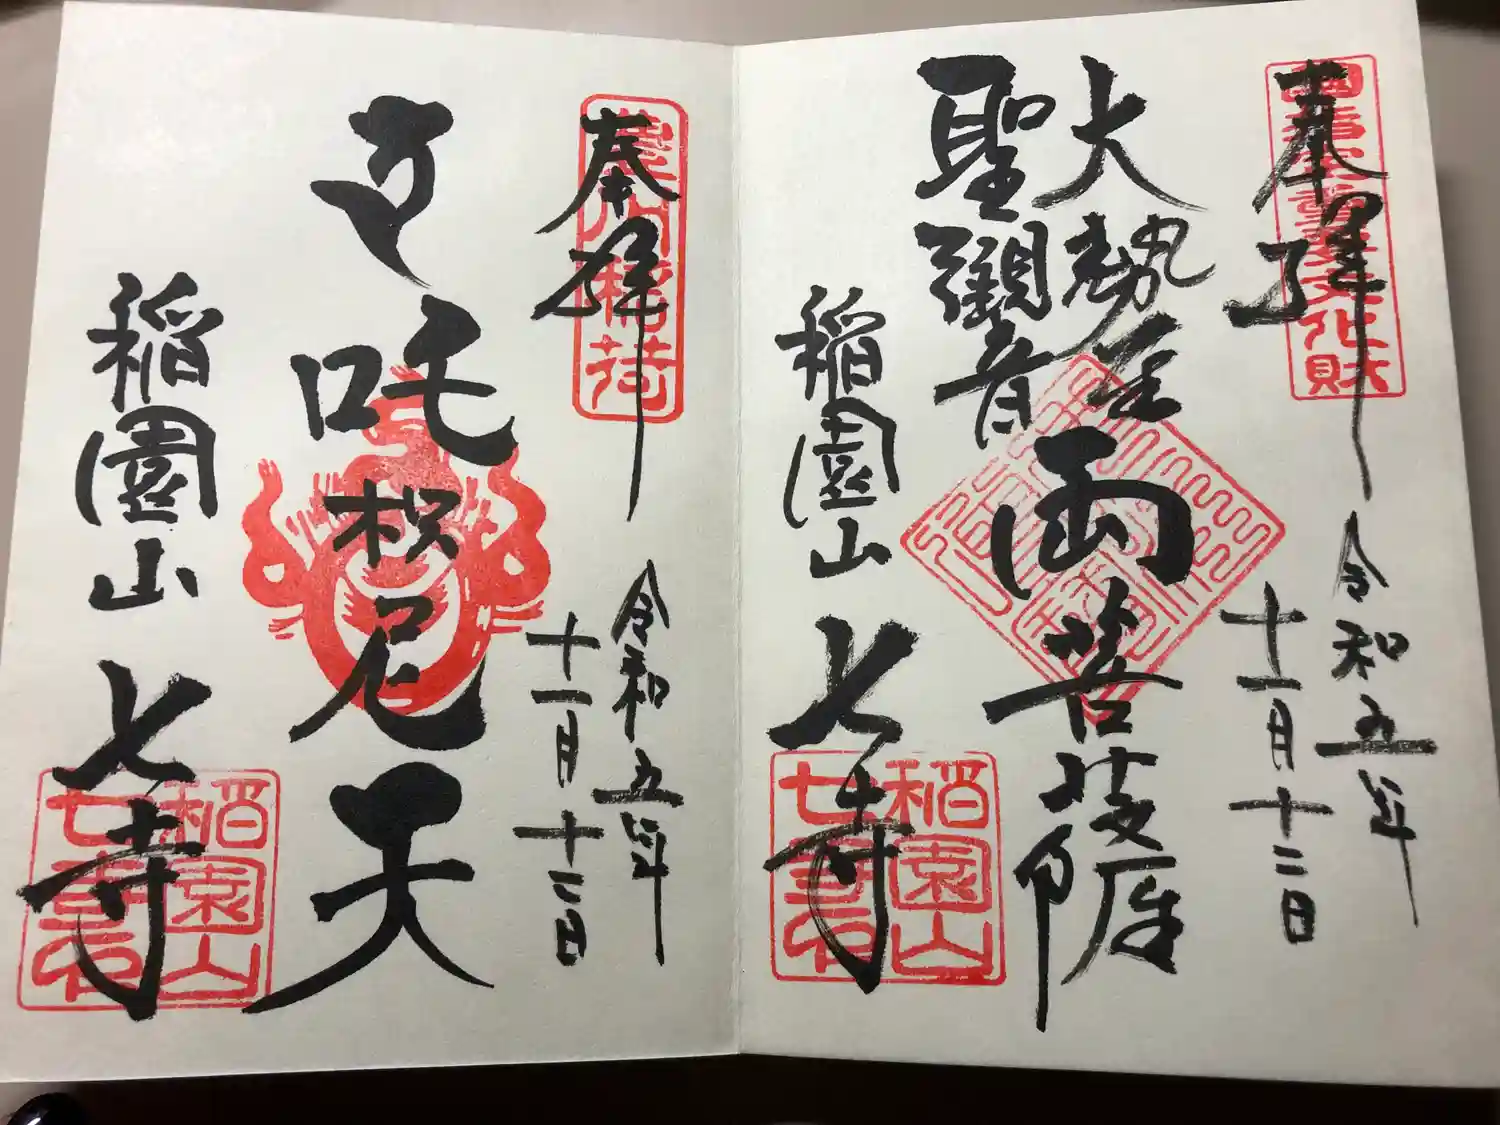 奉拝
重要文化財
令和五年
十一月十二日
大勢至
聖觀音
両菩薩
稲園山 七寺
稲園山
奉拝
豊川稲荷
令和五年
十一月十二日
吒枳尼天
稲園山 七寺
稲園山